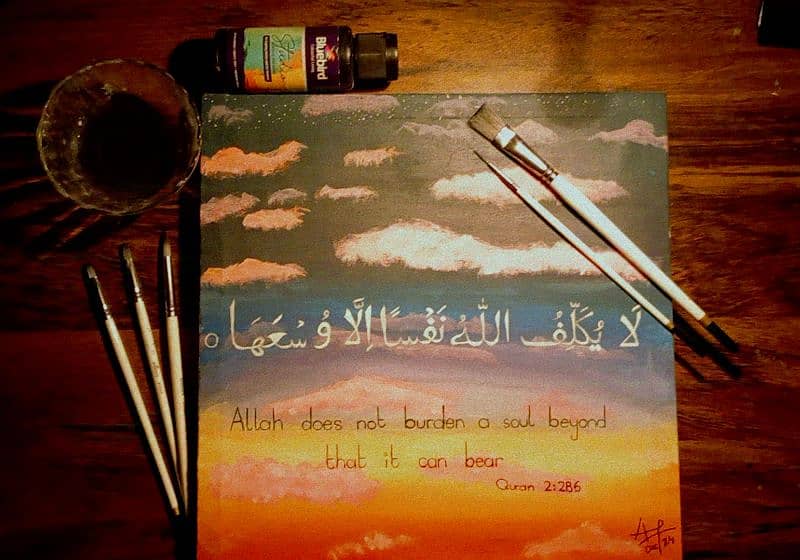 Bluebird
لَا يُكَلِّفُ اللّٰهُ نَفْسًا اِلَّا وُسْعَهَا ○
Allah does not burden a soul beyond
that it can bear
Quran 2:286